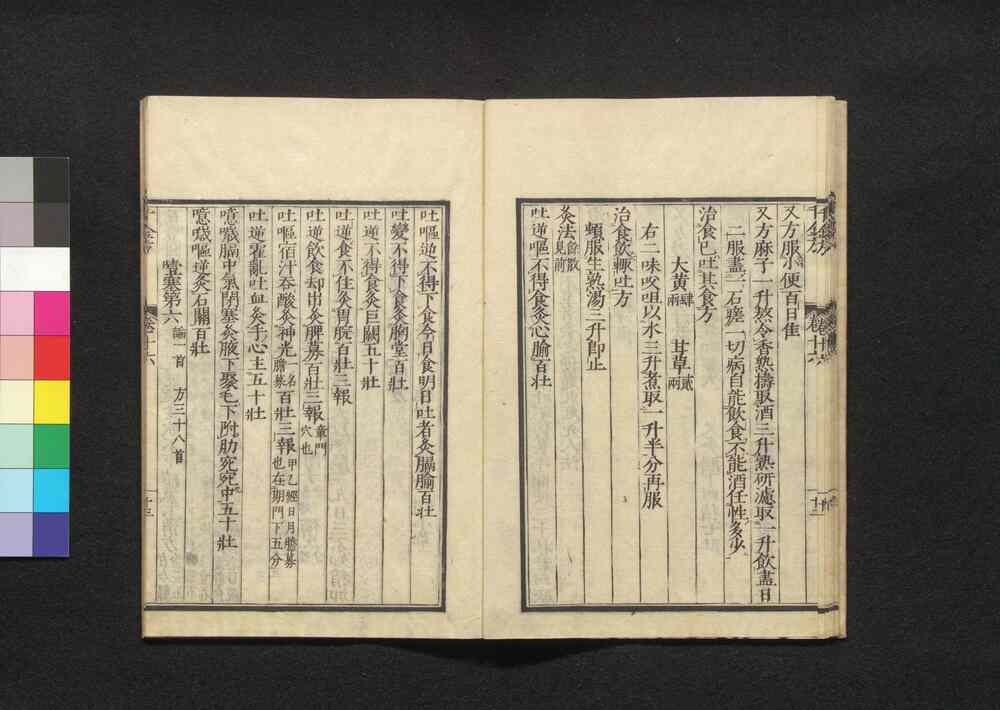 又方服小便百日佳
又方麻子一升熬令香熟擣取酒三升熟研濾取一升飲盡日
二服盡一石瘥一切病自能飲食不能酒任性多少
治食已吐其食方
大黃肆兩 甘草貳兩
右二味㕮咀以水三升煮取一升半分再服
治食飲輒吐方
頓服生熟湯三升卽止
灸法餘散見前
吐逆嘔不得食灸心腧百壯
吐嘔逆不得下食今日食明日吐者灸膈腧百壯
吐變不得下食灸胸堂百壯
吐逆不得食灸巨闕五十壯
吐逆食不住灸胃脘百壯三報
吐逆飲食却出灸脾募百壯三報章門穴也
吐嘔宿汁吞酸灸神光一名膽募百壯三報甲乙經日月膽募也在期門下五分
吐逆霍亂吐血灸手心主五十壯
噫噦膈中氣閉塞灸腋下聚毛下附肋宛宛中五十壯
噫噦嘔逆灸石關百壯
噎塞第六論一首 方三十八首